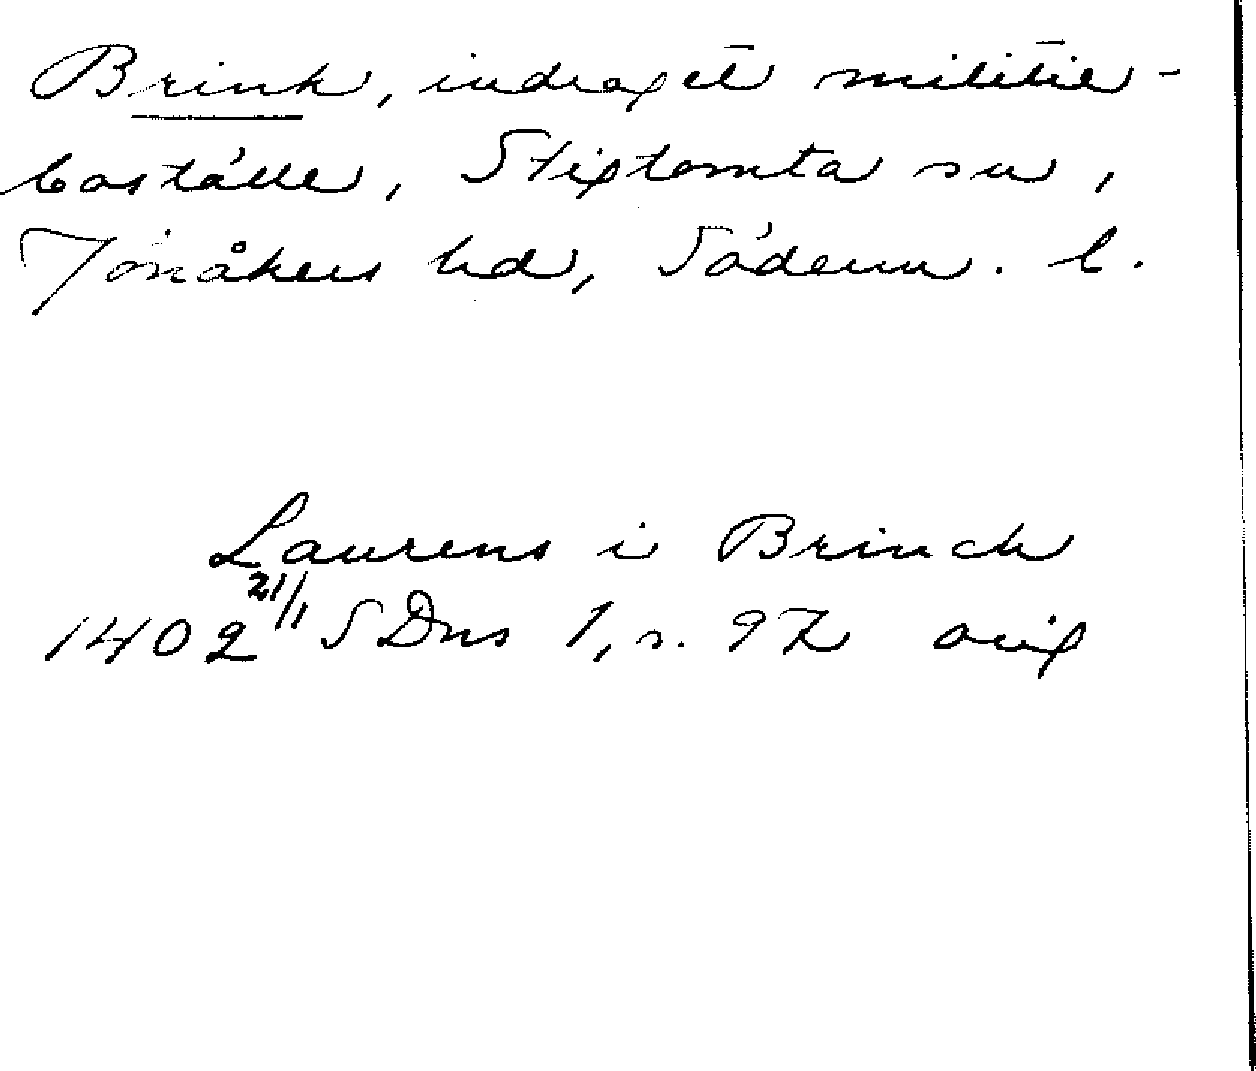 Brink, indraget militie-
boställe, Stigtomta sn,
Jönåkers hd, Söderm. l.
Laurens i Brinck
1402 21/1 SDns 1, s. 97 orig